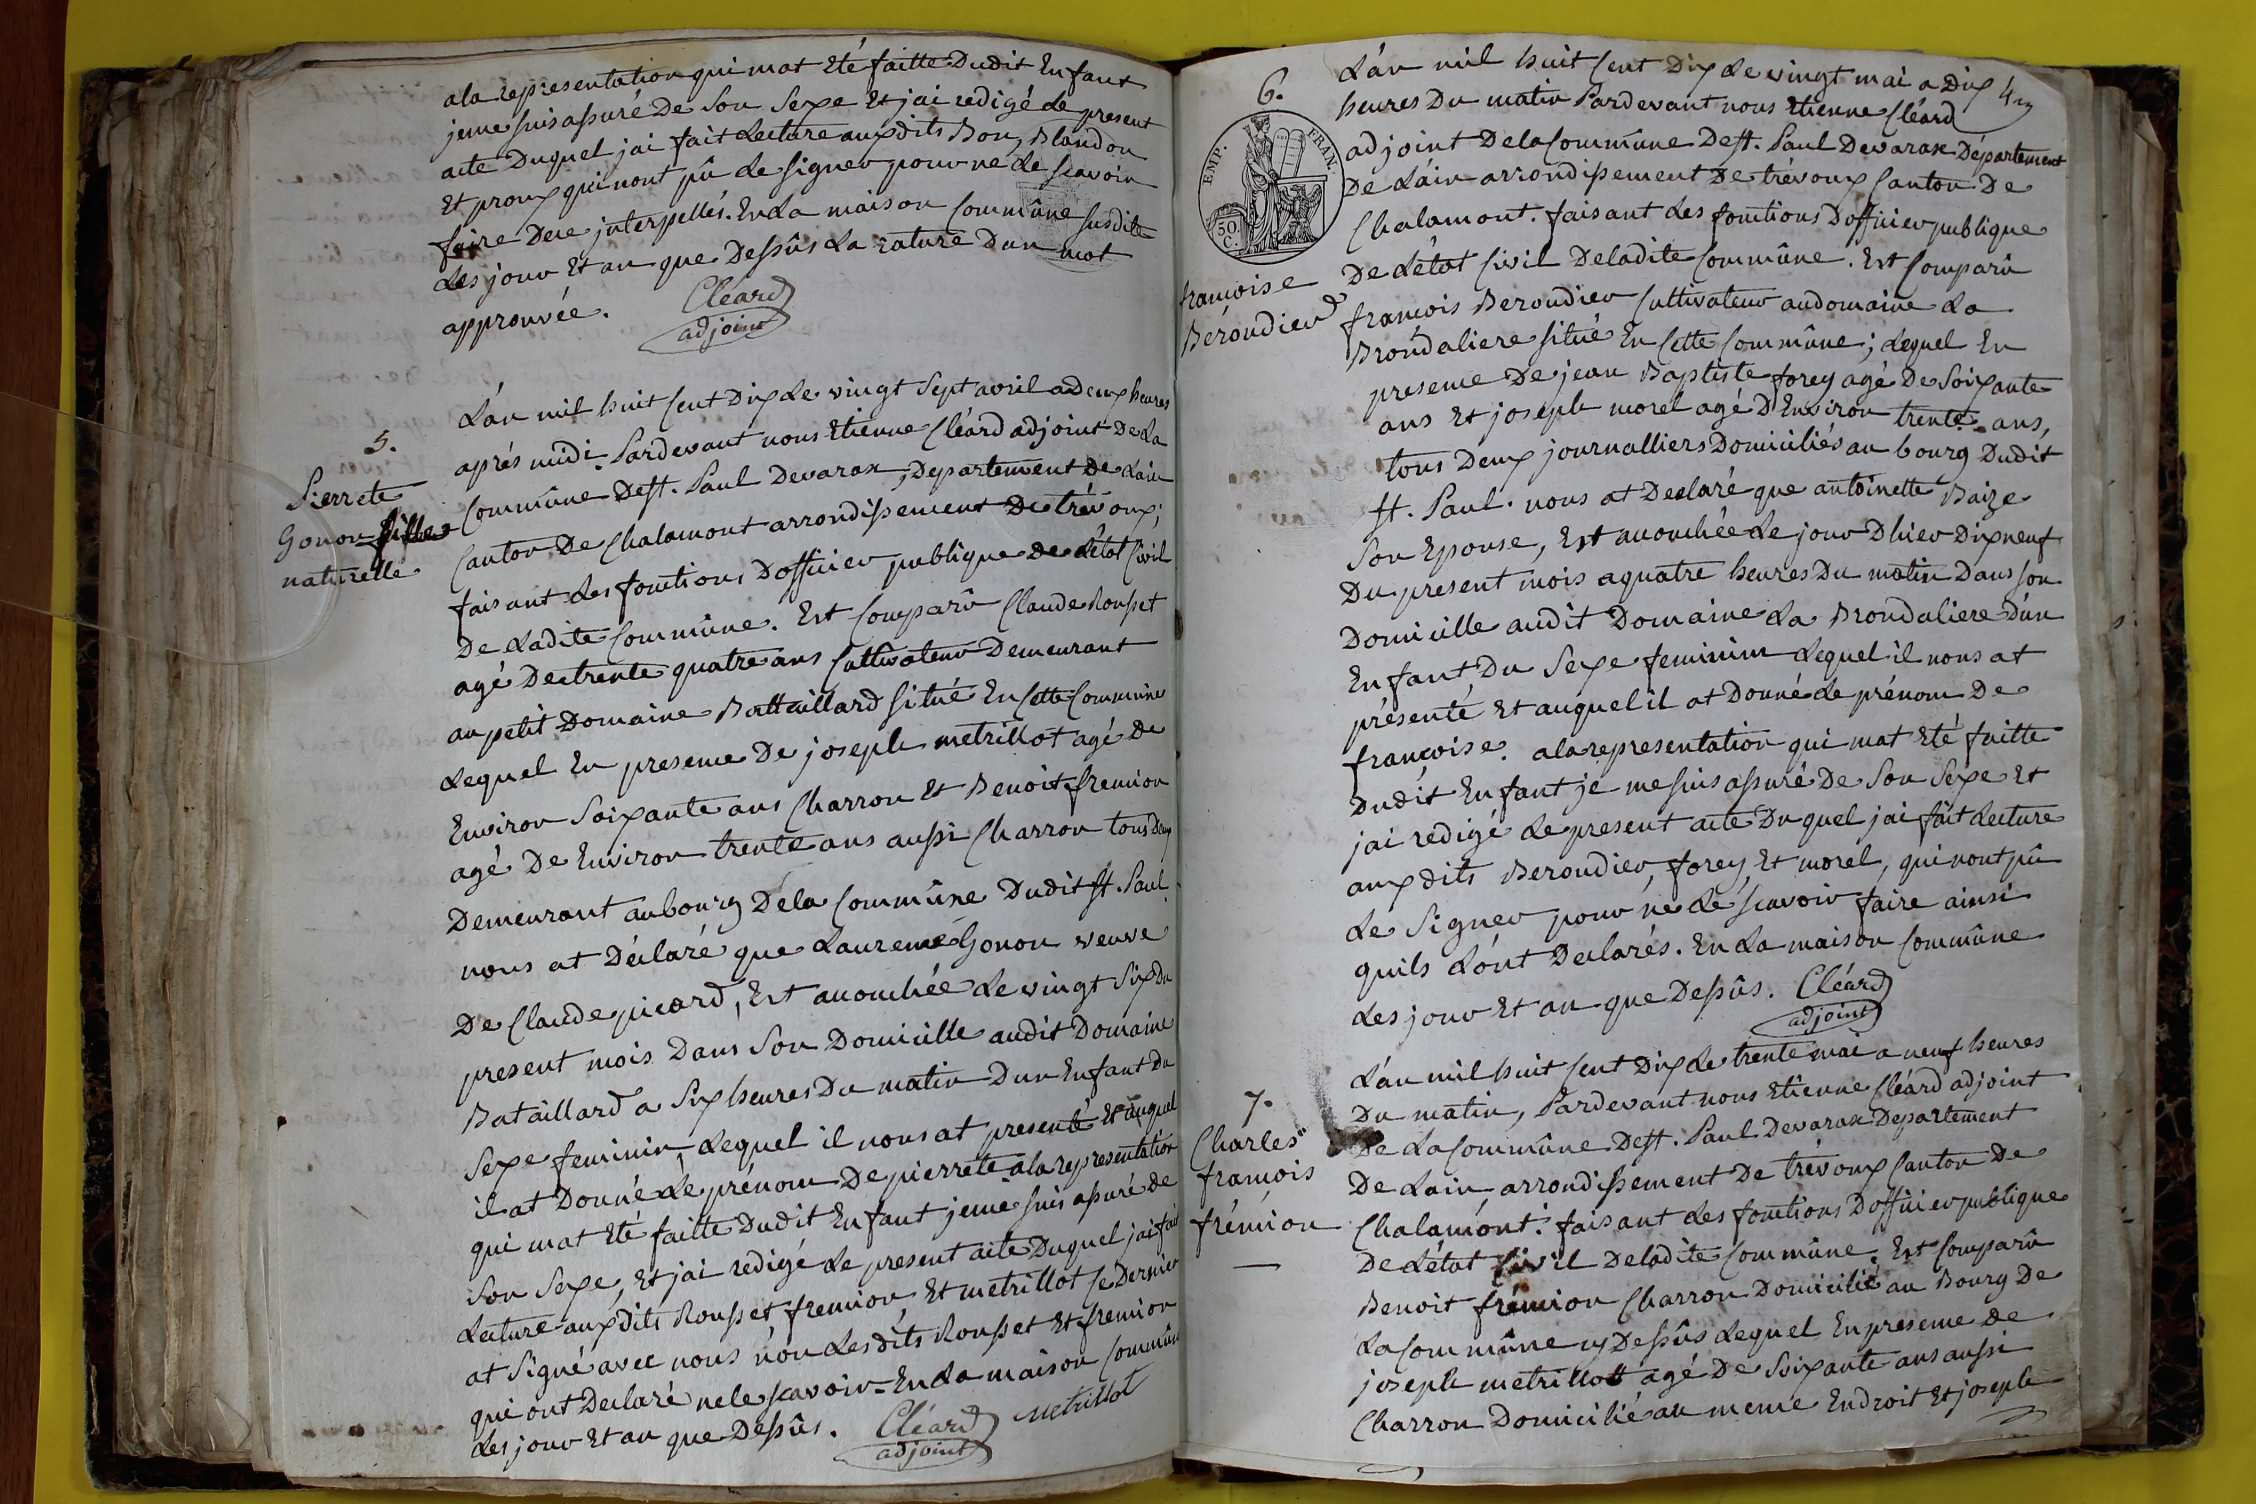 ala representation qui mat Eté faitte Dudit Enfant
jeme suis assuré De Son Sexe Et jai redigé Le present
acte Duquel jai fait Lecture auxdits Bon, Blandon
Et proux qui nont pû Le Signer pour ne Le scavoir
faire Dece interpellés. En La maison Commûne susdite
Les jour Et an que Dessûs La rature Dun mot
approuvée.
Cléard
adjoint
5.
Pierrete
Gonon fille
naturelle
L'an mil huit Cent Dix Le vingt Sept avril a deux heures
aprés midi. Pardevant nous Etienne Cléard adjoint De La
Commûne De St. Paul Devarax, Departement De Lain
Canton De Chalamont arrondissement De trévoux;
faisant Les fonctions D'officier publique De L'état Civil
De Ladite Commûne. Est Comparû Claude Rousset
agé De trente quatre ans Cultivateur Demeurant
au petit Domaine Battaillard situé En Cette Commûne
Lequel En presence De joseph metrillot agé De
Environ Soixante ans Charron Et Benoit fremion
agé De Environ trente ans aussi Charron tous Deux
Demeurant au bourg De la Commûne Dudit St. Paul
nous at Déclaré que Laurence Gonon veuve
De Claude picard, Est accouchée Le vingt Six Du
present mois Dans Son Domicille audit Domaine
Bataillard a Six heures Du matin Dun Enfant Du
Sexe feminin, Lequel il nous at presenté Et auquel
il at Donné Le prénom De pierrete ala representation
qui mat Eté faitte Dudit Enfant jeme suis assuré De
Son Sexe, Et jai redigé Le present acte Duquel jai fait
Lecture auxdits Rousset, fremion, Et metrillot Ce Dernier
at Signé avec nous non Lesdits Rousset Et fremion
qui ont Declaré nele scavoir. En La maison Commûne
Les jour Et an que Dessûs.
Cléard
adjoint
metrillot
4
6.
EMP.
FRAN.
50
C.
francoise
Béroudier
L'an mil huit Cent Dix Le vingt mai a Dix
heures Du matin Pardevant nous Etienne Cléard
adjoint De la Commûne De St. Paul Devarax Département
De L'ain arrondissement De trévoux Canton De
Chalamont. faisant Les fonctions D'officier publique
De L'état Civil De ladite Commûne. Est Comparû
francois Beroudier Cultivateur au domaine La
Brondaliere situé En Cette Commûne; Lequel En
presence De jean Baptiste forey agé De Soixante
ans Et joseph morel agé D'Environ trente ans,
tous Deux journalliers Domiciliés au bourg Dudit
St. Paul. nous at Declaré que antoinette Baize
Son Epouse, Est accouchée Le jour Dhier Dixneuf
Du present mois a quatre heures Du matin Dans son
Domicille audit Domaine La Brondaliere D'un
Enfant Du Sexe feminim Lequel il nous at
présenté Et auquel il at Donné Le prénom De
francoise. ala representation qui mat Eté faitte
Dudit Enfant je me suis assuré De Son Sexe Et
jai redigé Le present acte Duquel jai fait Lecture
auxdits Beroudier, forey, Et morel, qui nont pû
Le Signer pour ne Le scavoir faire ainsi
quils L'ont Declarés. En La maison Commûne
Les jour Et an que Dessûs.
Cléard
adjoint
7.
Charles
francois
frémion
L'an mil huit Cent Dix Le trente mai a neuf heures
Du matin, Pardevant nous Etienne Cléard adjoint
De La Commûne De St. Paul Devarax Departement
De Lain arrondissement De trévoux Canton De
Chalamont. faisant Les fonctions D'officier publique
De L'état Civil De ladite Commûne. Est Comparû
Benoit frémion Charron Domicilié au Bourg De
La Commûne cy Dessûs Lequel En presence De
joseph metrillott agé De Soixante ans aussi
Charron Domicilié au meme Endroit Et joseph